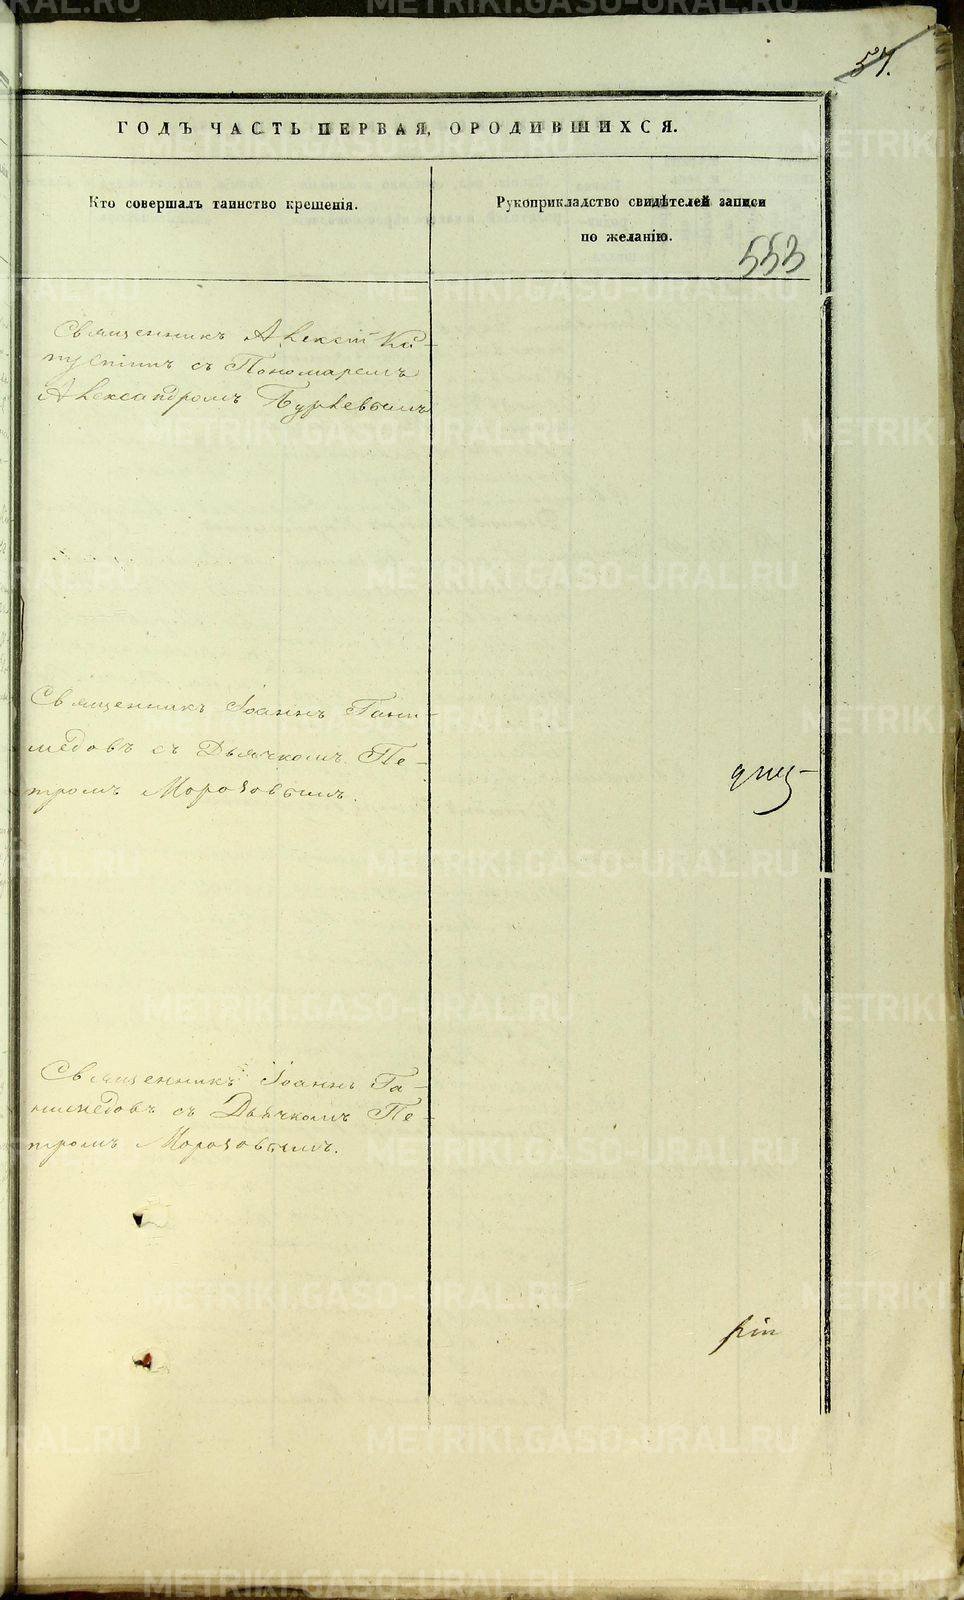 57.
ГОДЪ ЧАСТЬ ПЕРВАЯ, О РОДИВШИХСЯ.
Кто совершалъ таинство крещенія.
Рукоприкладство свидѣтелей записи
по желанію.
553
Священникъ Алексій Ка-
съ Пономаремъ
Александромъ
Священникъ Іоаннъ Гани-
медовъ съ Дьячкомъ Пе-
тромъ Морозовымъ.
Священникъ Іоаннъ Га-
нимедовъ съ Дьячкомъ Пе-
тромъ Морозовымъ.
METRIKI.GASO-URAL.RU